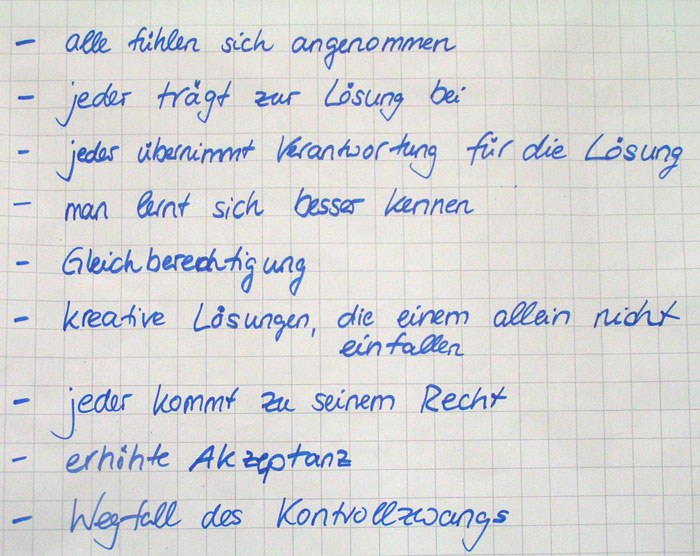 - alle fühlen sich angenommen
- jeder trägt zur Lösung bei
- jeder übernimmt Verantwortung für die Lösung
- man lernt sich besser kennen
- Gleichberechtigung
- kreative Lösungen, die einem allein nicht
einfallen
- jeder kommt zu seinem Recht
- erhöhte Akzeptanz
- Wegfall des Kontrollzwangs